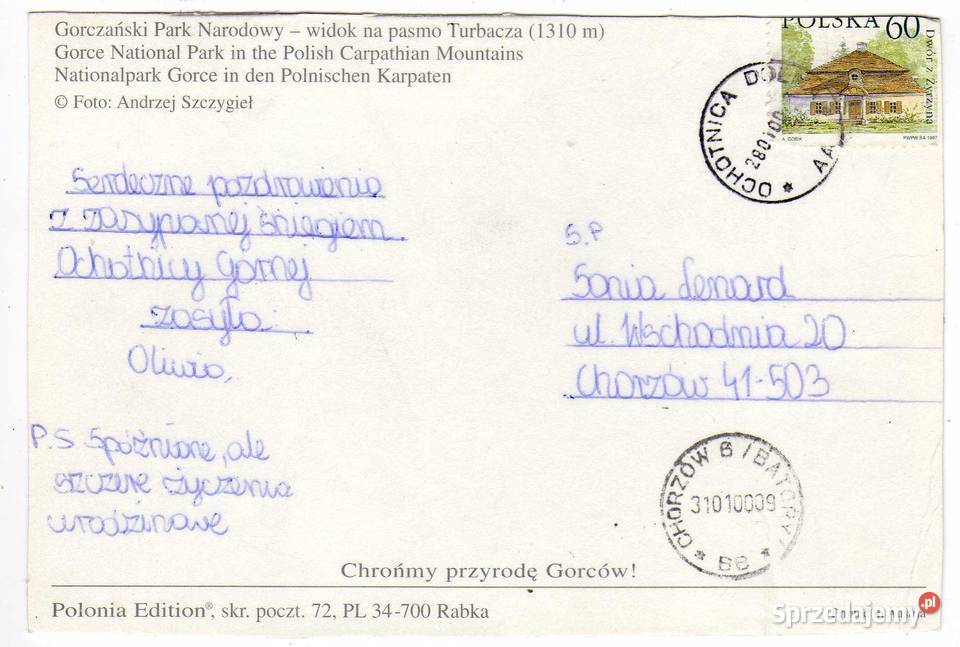 Gorczański Park Narodowy – widok na pasmo Turbacza (1310 m)
Gorce National Park in the Polish Carpathian Mountains
Nationalpark Gorce in den Polnischen Karpaten
© Foto: Andrzej Szczygieł
POLSKA 60
Dwór z Żyrzyna
A. GOSIK
PWPW SA 1997
OCHOTNICA DOL
280100
AA
Serdeczne pozdrowienia
z zasypanej śniegiem
Ochotnicy Górnej
zasyła
Oliwia,
P.S Spóźnione, ale
szczere życzenia
urodzinowe
S.P
Sonia Lenard
ul. Wschodnia 20
Chorzów 41-503
CHORZÓW 6 / BATORY /
31010009
BB
Chrońmy przyrodę Gorców!
Polonia Edition®, skr. poczt. 72, PL 34-700 Rabka
Sprzedajemy.pl